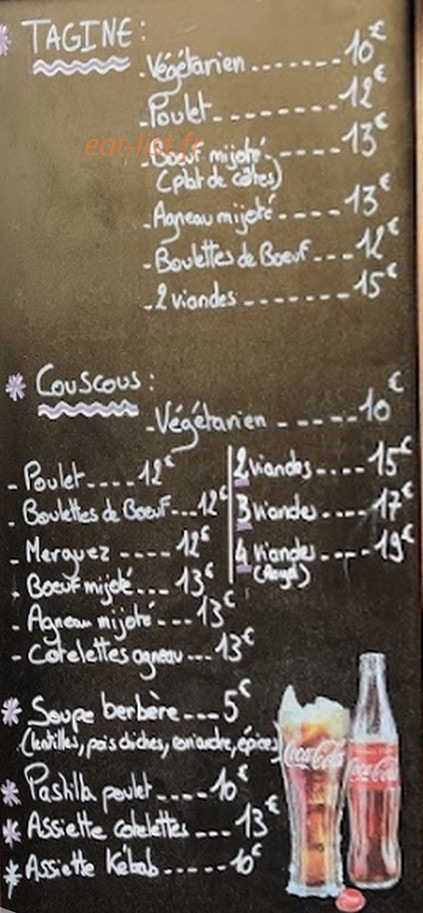 * TAGINE :
- Végétarien ------- 10€
- Poulet --------- 12€
eat-list.fr
- Boeuf mijoté ----- 13€
(plat de côtes)
- Agneau mijoté ---- 13€
- Boulettes de Boeuf --- 12€
- 2 viandes ------- 15€
* Couscous :
- Végétarien ----- 10€
- Poulet ---- 12€
- Boulettes de Boeuf --- 12€
- Merguez ---- 12€
- Boeuf mijoté --- 13€
- Agneau mijoté --- 13€
- Cotelettes agneau --- 13€
2 viandes ---- 15€
3 viandes ---- 17€
4 viandes ---- 19€
(Royal)
* Soupe berbère --- 5€
(lentilles, pois chiches, coriandre, épices)
* Pastilla poulet ---- 10€
* Assiette cotelettes --- 13€
* Assiette Kébab ----- 10€
Coca-Cola
Coca-Cola